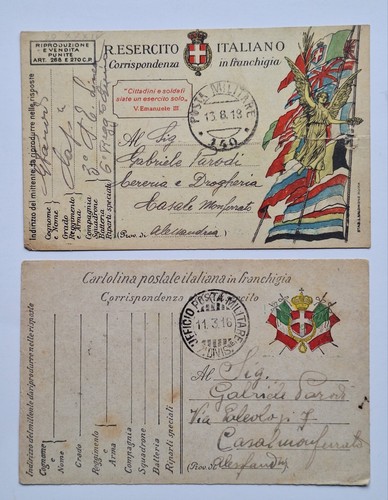 RIPRODUZIONE
E VENDITA
PUNITE
ART. 285 E 270 C.P.
R. ESERCITO ITALIANO
Corrispondenza in franchigia
"Cittadini e soldati
siate un esercito solo„
V. Emanuele III.
POSTA MILITARE
13 8 18
140
Al Sig
Gabriele Parodi
Cereria e Drogheria
Casale Monferrato
(Prov. di Alessandria)
Indirizzo del mittente da riprodurre nelle risposte
Cognome
e Nome
Grado
Reggimento
e Arma
Compagnia
Squadrone
Batteria
Riparti speciali
Cartolina postale italiana in franchigia
Corrispondenza Esercito
UFFICIO POSTA MILITARE
11.3.16
DIVIS.
Al Sig.
Gabriele Parodi
Via
Casalmonferrato
(Prov. di Alessandria)
Indirizzo del mittente da riprodurre nelle risposte
Cognome
e
Nome
Grado
Reggimento
e
Arma
Compagnia
Squadrone
Batteria
Riparti speciali